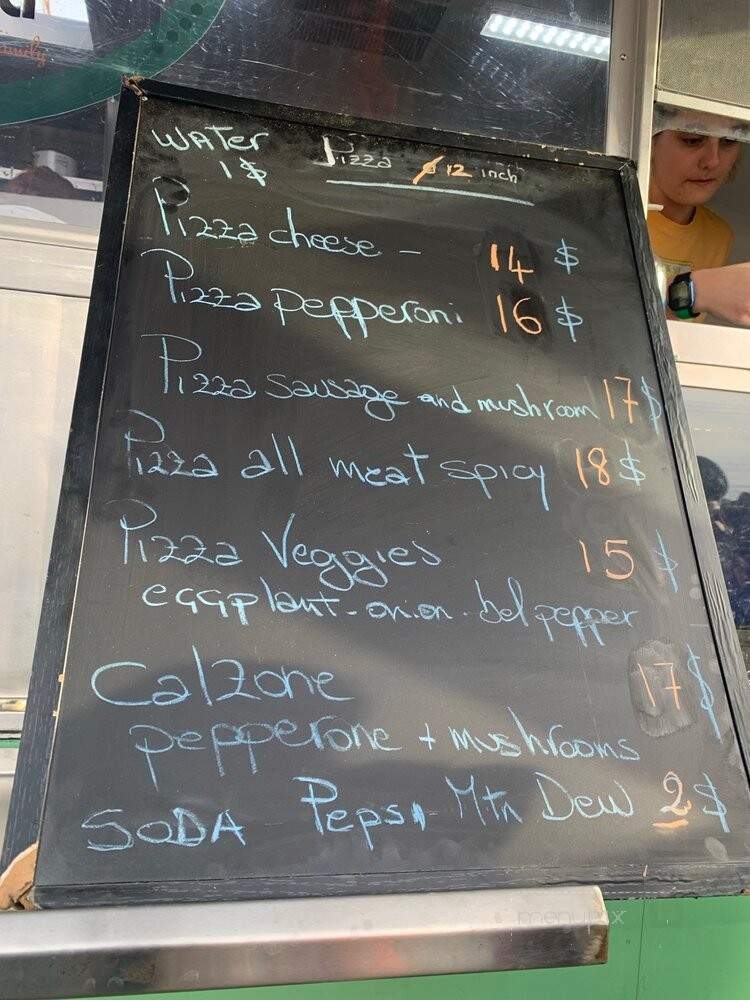 WATer
1$
Pizza 12 inch
Pizza cheese - 14 $
Pizza pepperoni 16 $
Pizza sausage and mushroom 17$
Pizza all meat spicy 18$
Pizza Veggies 15 $
eggplant - onion - bel pepper
Calzone 17 $
pepperone + mushrooms
SODA Pepsi - Mtn Dew 2$
menupix